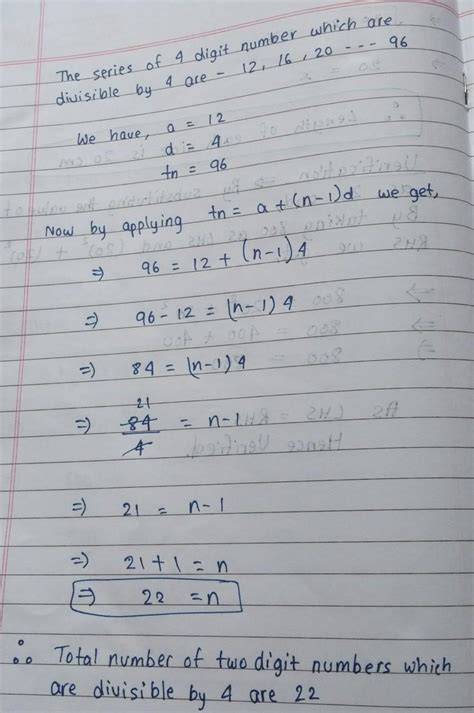 The series of 4 digit number which are
divisible by 4 are - 12, 16, 20 --- 96
We have, a = 12
d = 4
tn = 96
Now by applying tn = a + (n-1)d we get,
⇒ 96 = 12 + (n-1)4
⇒ 96 - 12 = (n-1)4
⇒ 84 = (n-1)4
21
⇒ 84/4 = n-1
⇒ 21 = n-1
⇒ 21 + 1 = n
⇒ 22 = n
∴ Total number of two digit numbers which
are divisible by 4 are 22